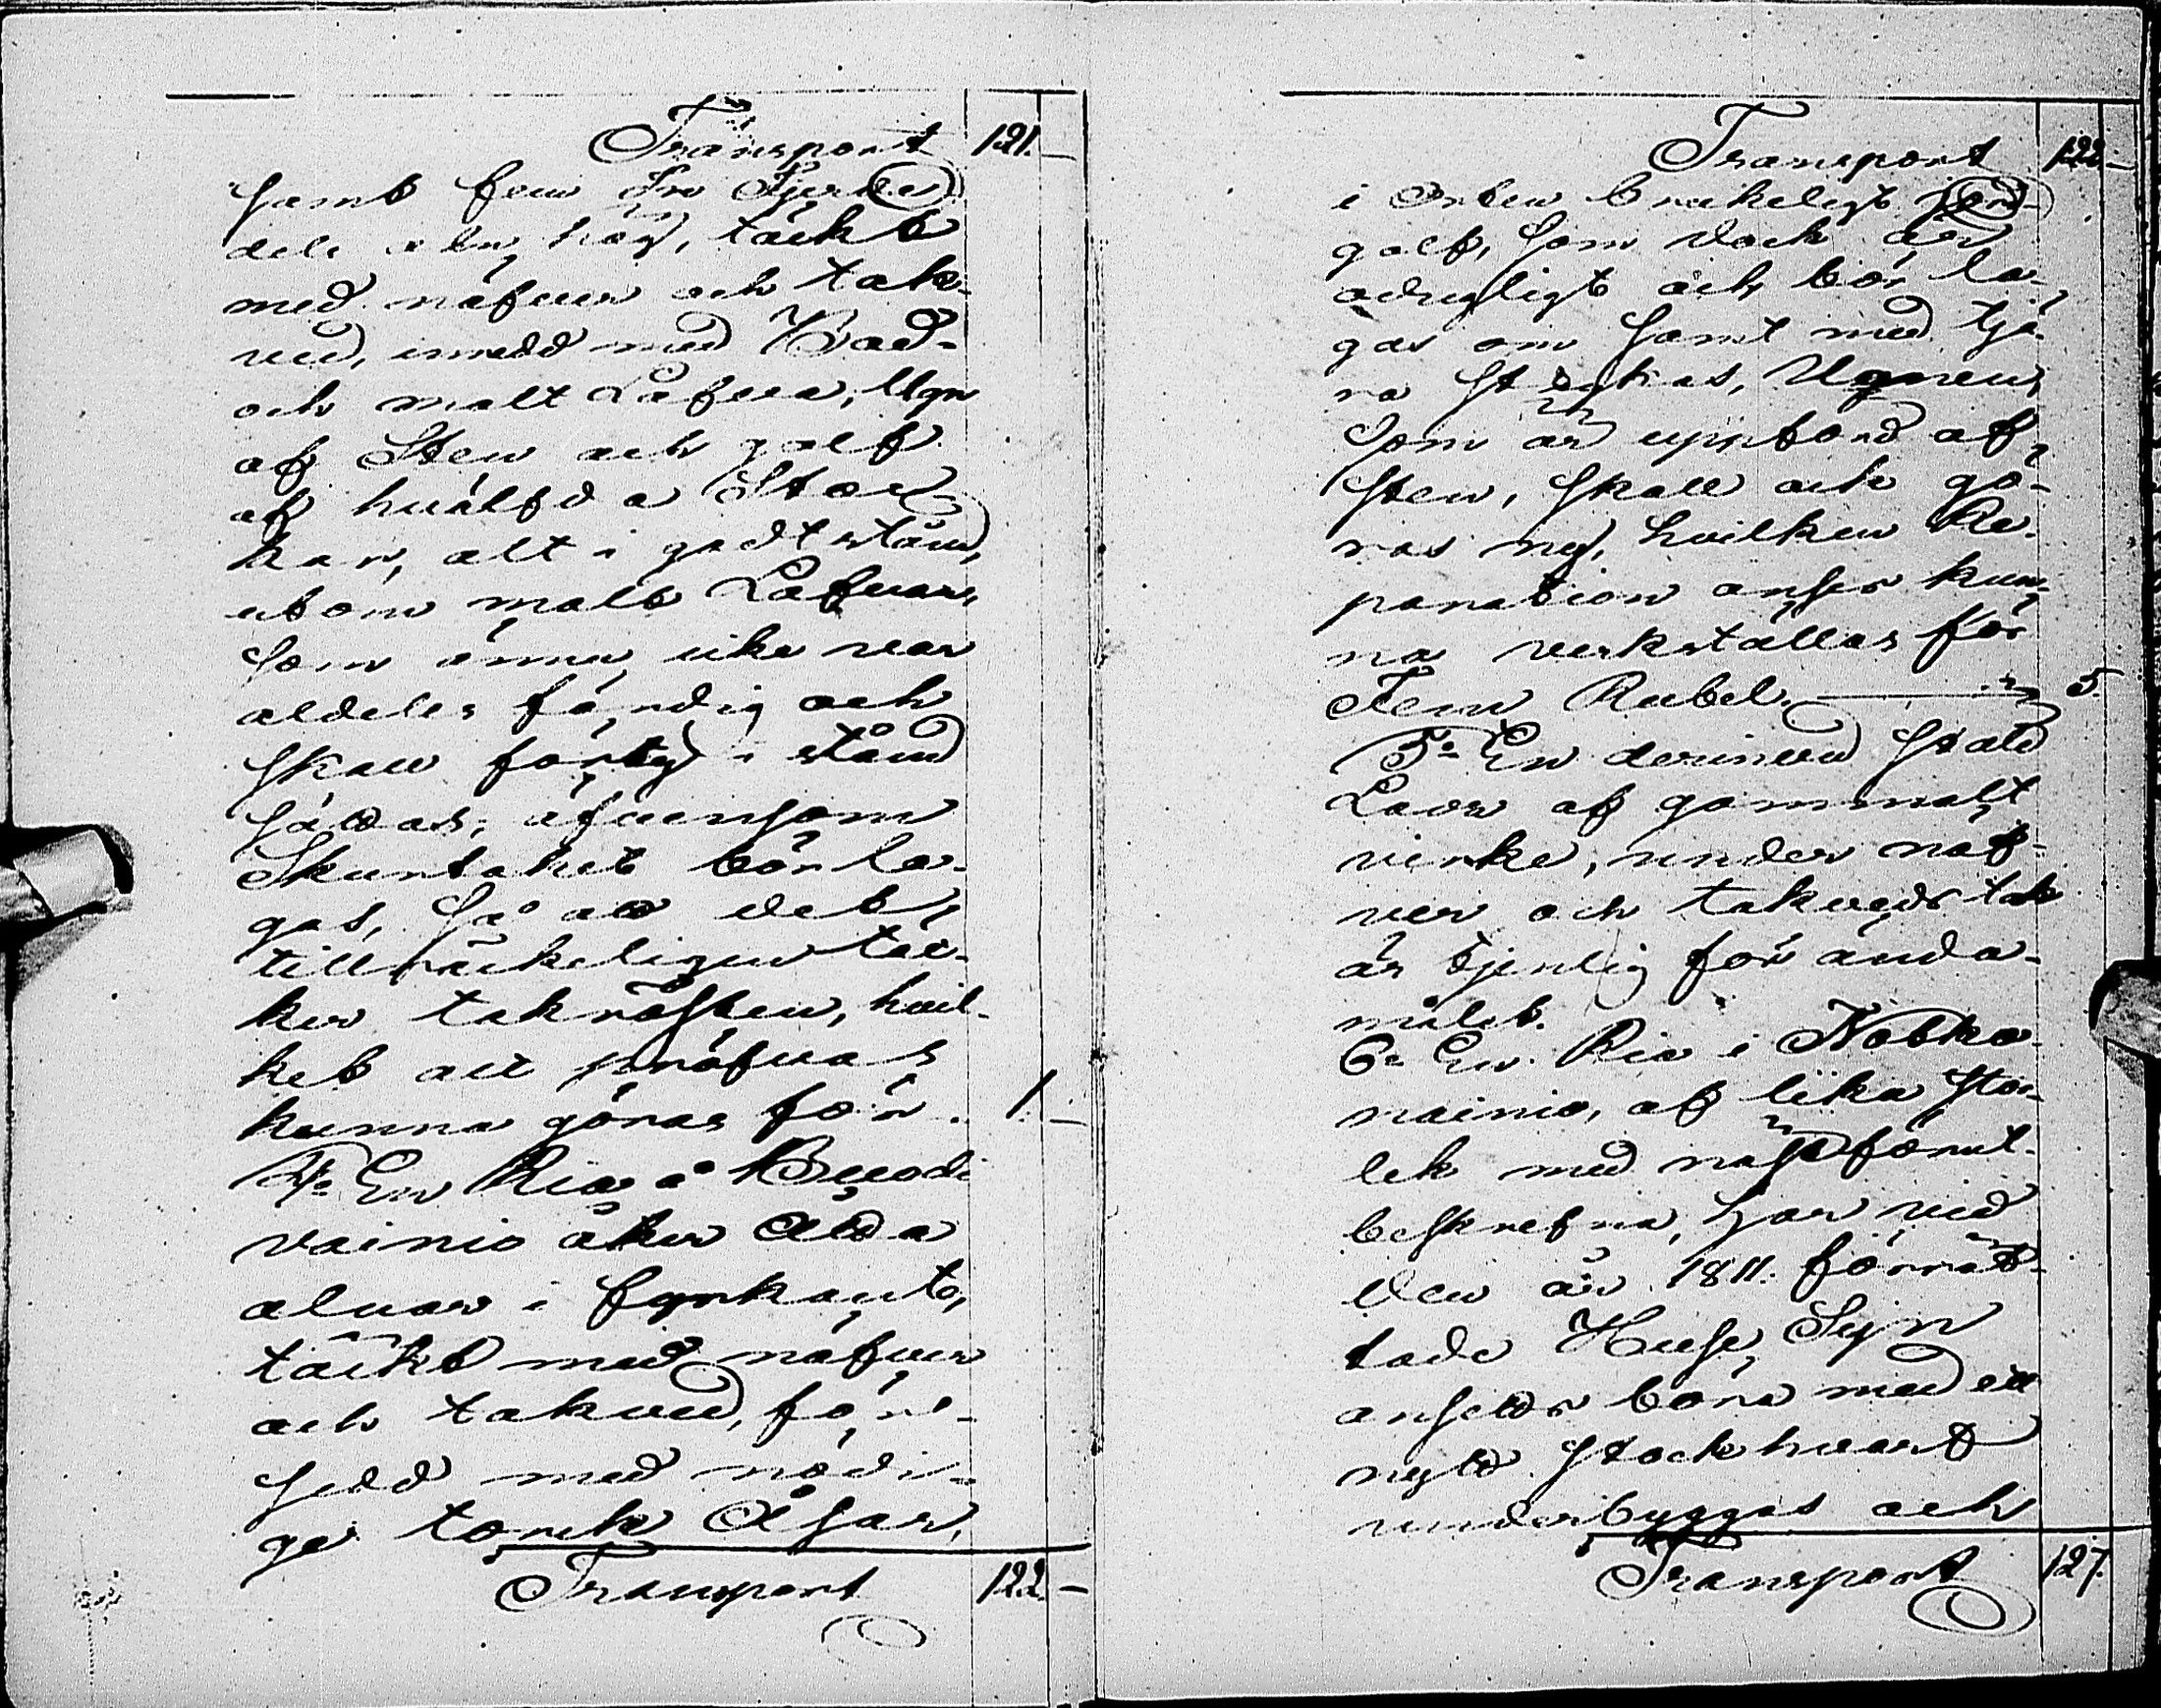 Transport 121. –
samt fem fjerde-
dels aln hög, täckt
med näfver och tak-
ved, inredd med Bad-
och malt Lafvea, Ugn
af Sten och golf
af huälfda Stoc-
kar, alt i godt stånd,
utom malt Lafvar,
som ännu icke var
aldeles färdig och
skall förty i stånd
sättas, äfvensom
Skurtaket bör la-
gas, så att det
tillräckeligen täc-
ker takrösten, hvil-
ket alt pröfvas
kunna göras för. 1. –
4:o En Ria å
vainio åker åtta
alnar i fyrkant,
täckt med näfver
och takved, för-
sedd med nödi-
ga torck Åsar,
Transport 122. –
Transport 122 –
i Orten brukeligt jord-
golf, som dock är
odugligt och bör la-
gas om samt med tjä-
ra strykas, Ugnen,
som är uppförd af
sten, skall ock gö-
ras ny, hvilken Re-
paration anses kun-
na verkställas för
Fem Rubel. 5
5:o En derinvid
af gammalt
virke, under näf-
ver och takveds tak
är tjenlig för ända-
målet.
6:o En Ria i
nainio, af lika stor-
lek med näst förut-
beskrefna, har vid
den år 1811. förrät-
tade Huse Syn
ansetts böra med ett
nytt stockhvarf
underbyggas och
Transport 127.